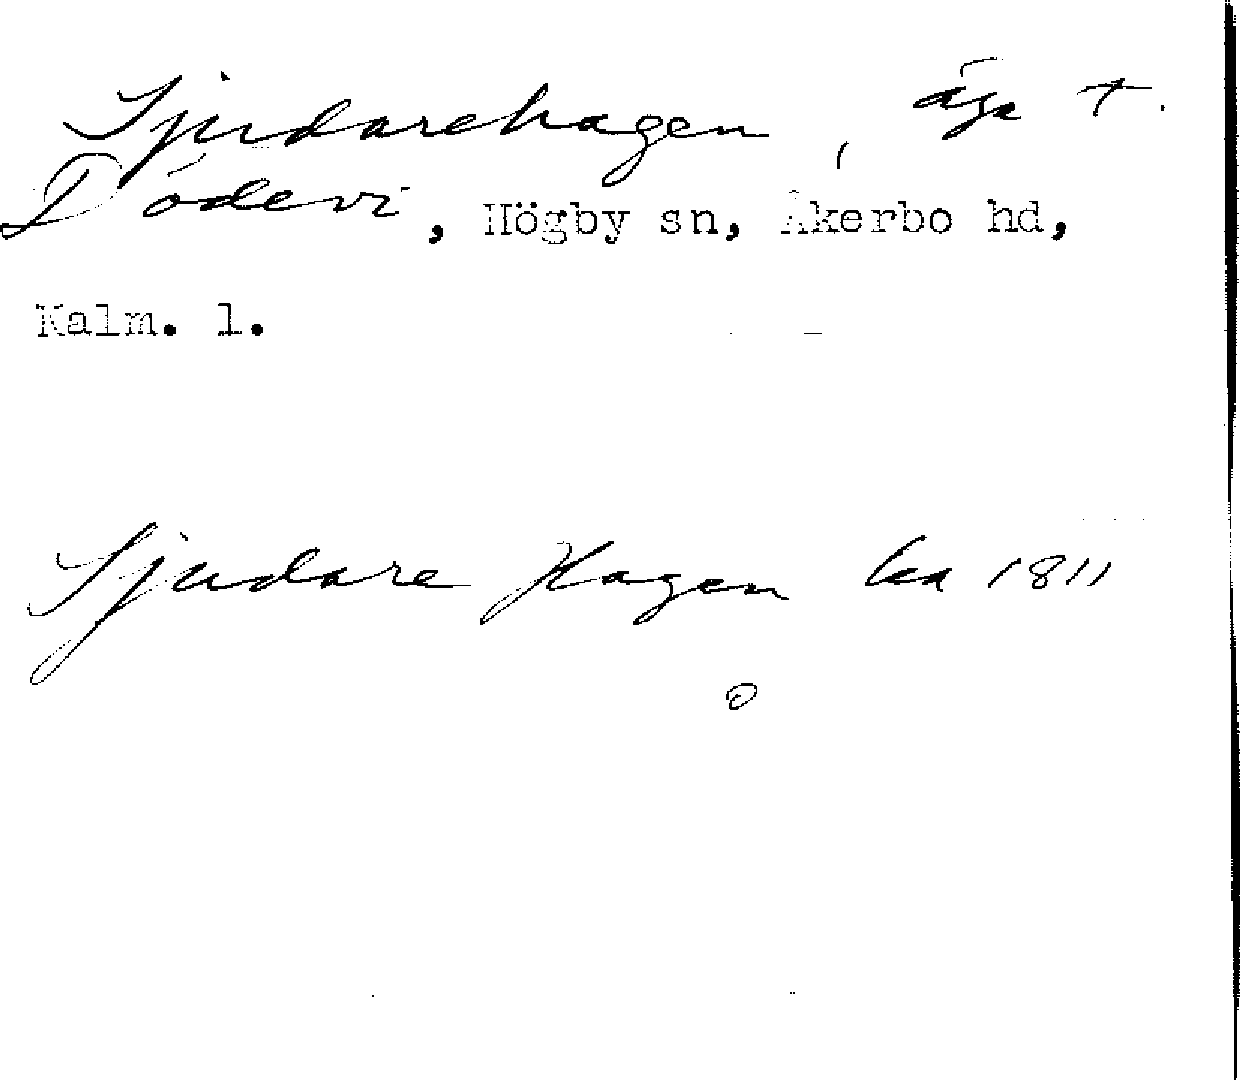 Sjudarehagen, äga t.
Dödevi, Högby sn, Åkerbo hd,
Kalm. l.
Sjudare Hagen ka 1811